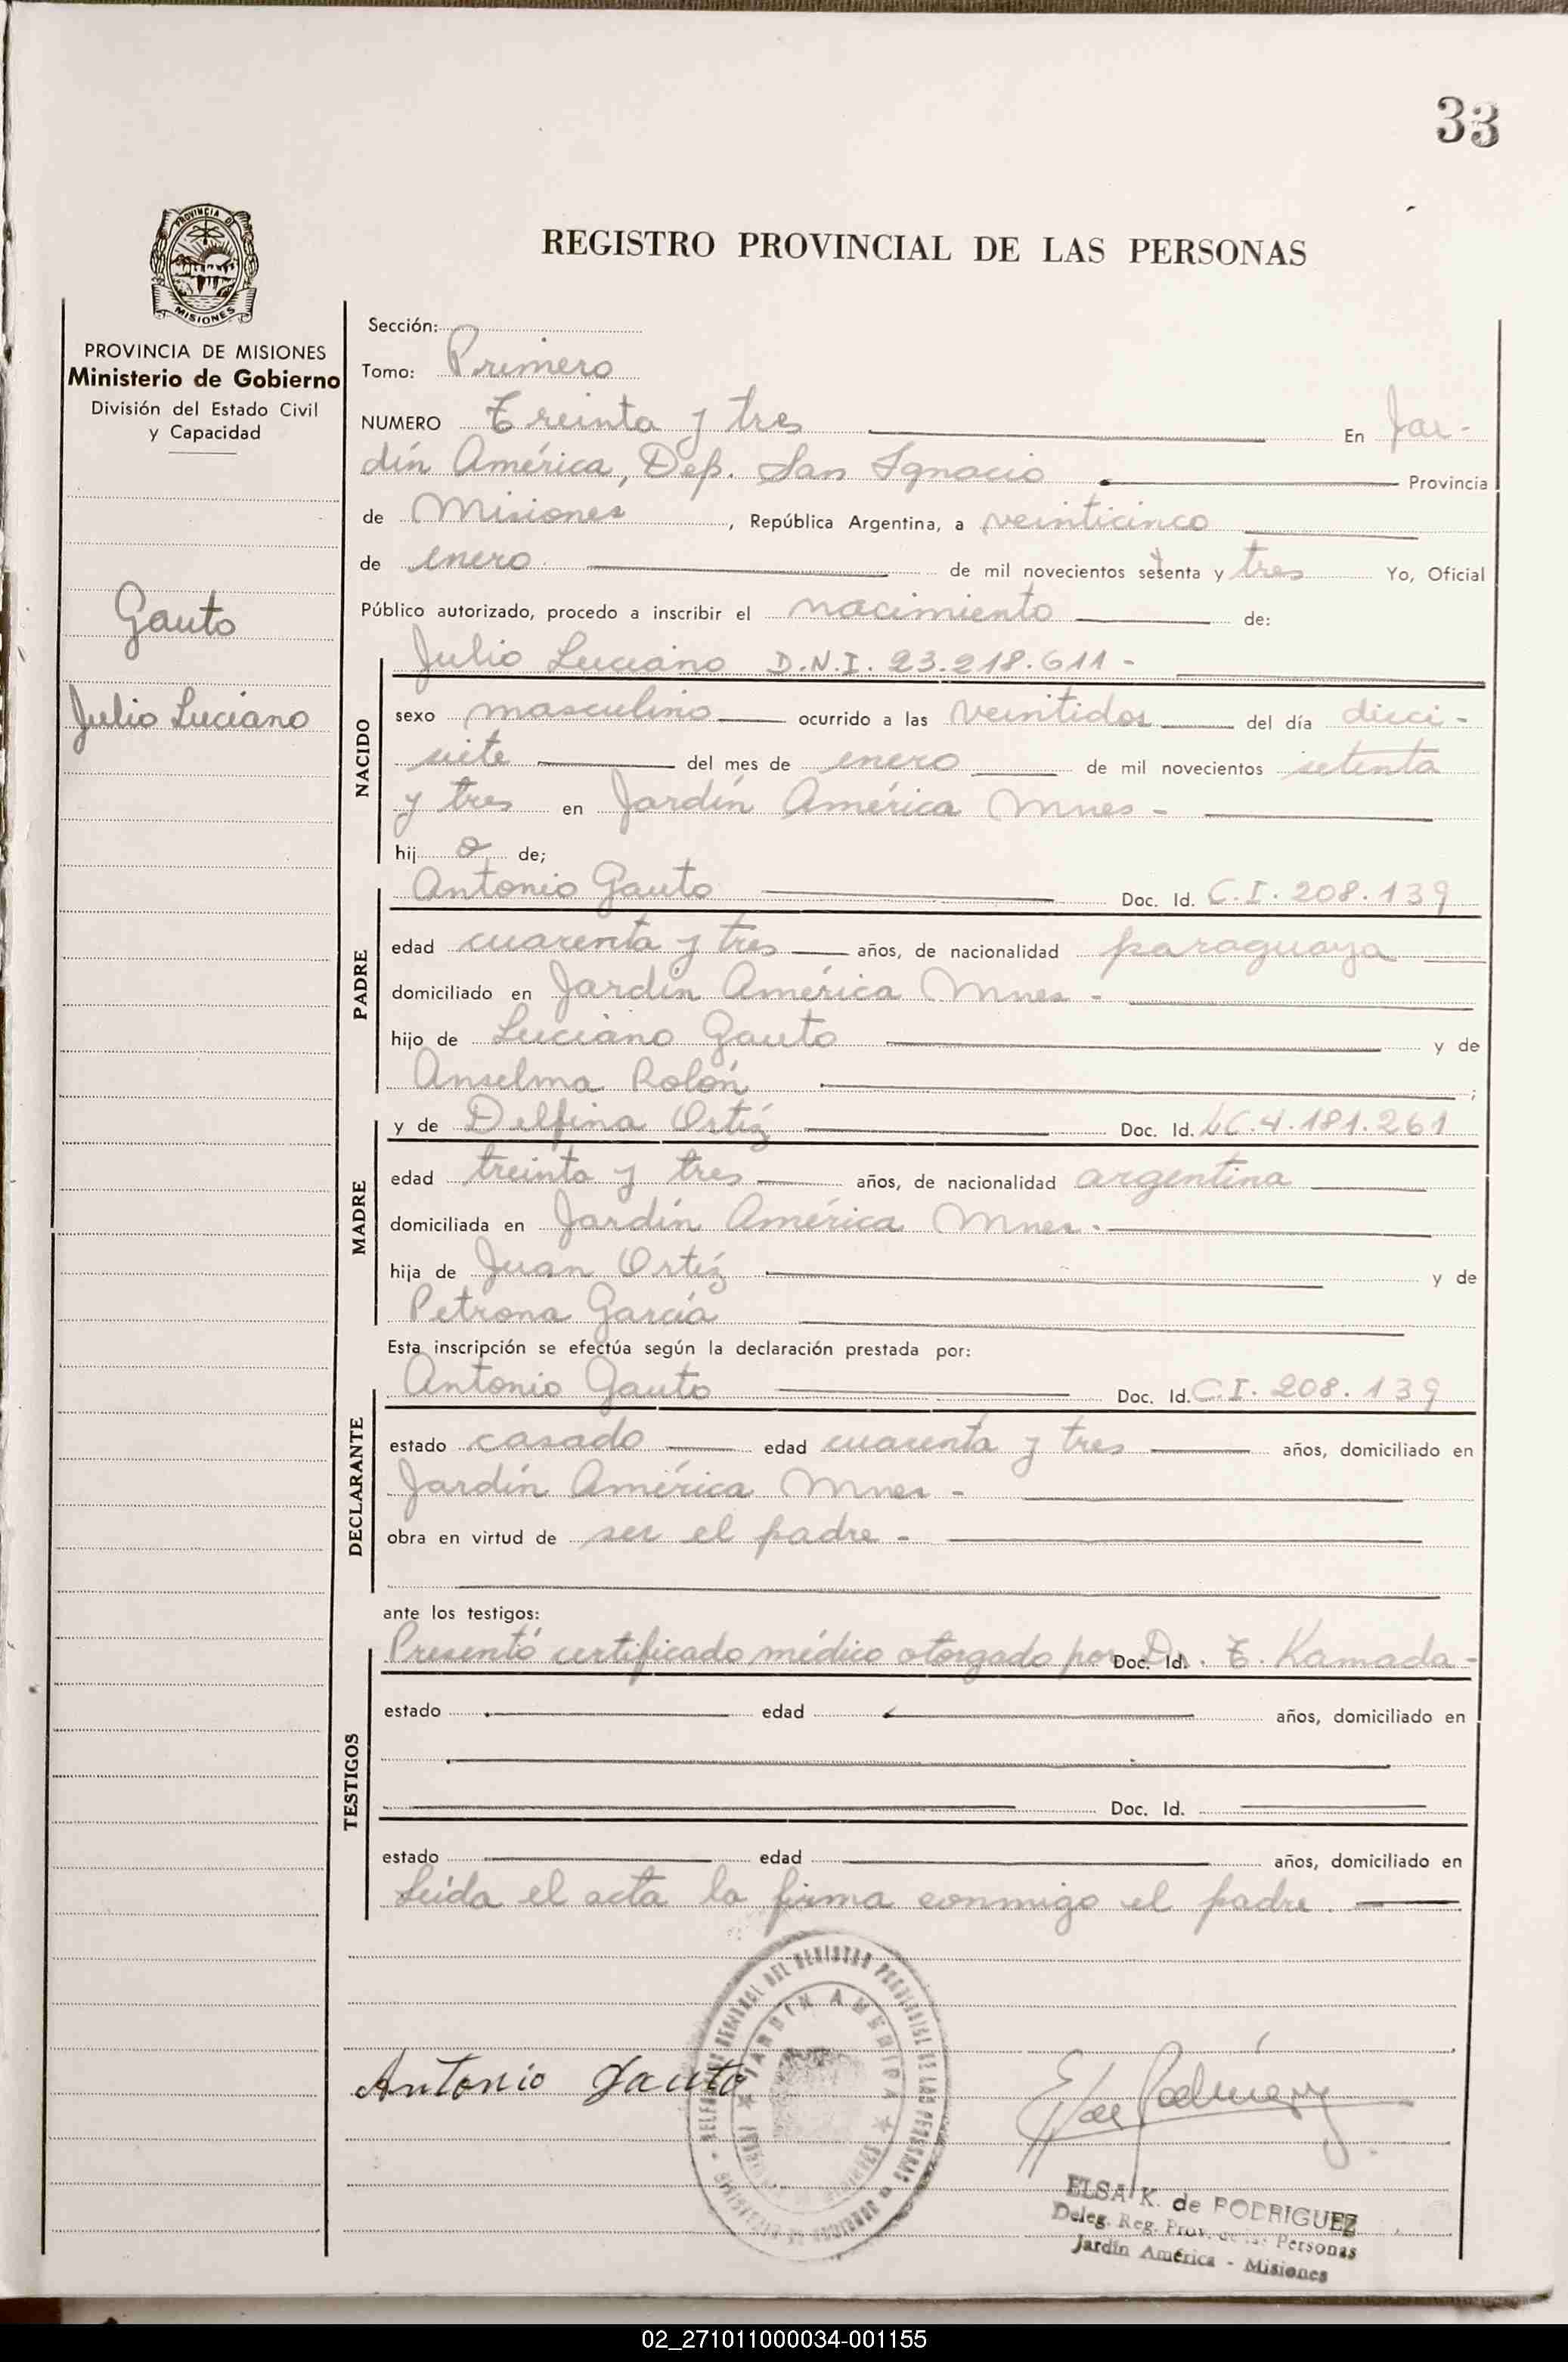 33
PROVINCIA DE
MISIONES
PROVINCIA DE MISIONES
Ministerio de Gobierno
División del Estado Civil
y Capacidad
Gauto
Julio Luciano
REGISTRO PROVINCIAL DE LAS PERSONAS
Sección:
Tomo: Primero
NUMERO Treinta y tres En Jar-
dín América, Dep. San Ignacio Provincia
de Misiones, República Argentina, a veinticinco
de enero de mil novecientos setenta y tres Yo, Oficial
Público autorizado, procedo a inscribir el nacimiento de:
NACIDO
Julio Luciano D.N.I. 23.218.611-
sexo masculino ocurrido a las veintidos del día dieci-
siete del mes de enero de mil novecientos setenta
y tres en Jardín América Mnes-
hijo de;
PADRE
Antonio Gauto Doc. Id. C.I. 208.139
edad cuarenta y tres años, de nacionalidad paraguaya
domiciliado en Jardín América Mnes-
hijo de Luciano Gauto y de
Anselma Rolón ;
MADRE
y de Delfina Ortíz Doc. Id. LC.4.181.261
edad treinta y tres años, de nacionalidad argentina
domiciliada en Jardín América Mnes-
hija de Juan Ortíz y de
Petrona García
Esta inscripción se efectúa según la declaración prestada por:
DECLARANTE
Antonio Gauto Doc. Id. C.I. 208.139
estado casado edad cuarenta y tres años, domiciliado en
Jardín América Mnes-
obra en virtud de ser el padre-
ante los testigos:
TESTIGOS
Presentó certificado médico otorgado por Doc. Id. Dr. T. Kamada-
estado edad años, domiciliado en
Doc. Id.
estado edad años, domiciliado en
Leída el acta la firma conmigo el padre.
Antonio Gauto
JARDIN AMERICA
ELSA K. de RODRIGUEZ
Deleg. Reg. Prov. de las Personas
Jardín América - Misiones
02_271011000034-001155